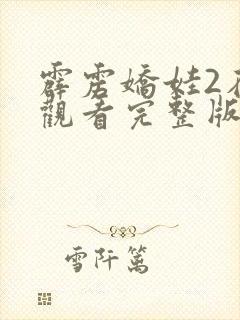 霹雳嬌娃2
觀看完整版
雪阡